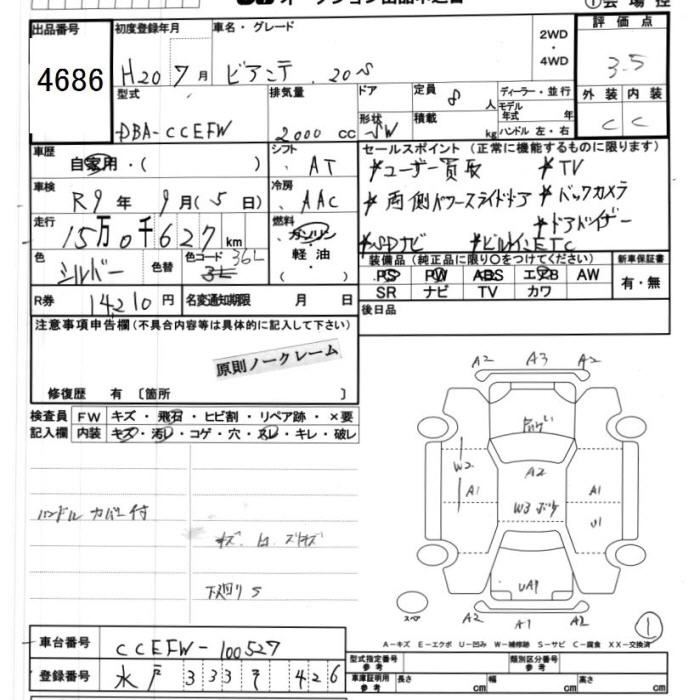 出品番号
4686
初度登録年月
H20 7月
車名・グレード
ビアンテ 20S
2WD
・
4WD
評価点
3.5
型式
DBA-CCEFW
排気量
2000 cc
ドア
形状
SW
定員
8人
積載
kg
ディーラー・並行
モデル年式 年
ハンドル 左・右
外装 内装
C C
車歴
自家用・( )
シフト
AT
車検
R9年 9月(5日)
冷房
AAC
走行
15万0千627km
燃料
ガソリン
・
軽油
( )
セールスポイント(正常に機能するものに限ります)
*ユーザー買取 *TV
*両側パワースライドドア *バックカメラ
*ドアバイザー
*SDナビ *ビルトインETC
色
シルバー
色替
色コード 36L
R券 14210円
名変通知期限 月 日
装備品(純正品に限り○をつけてください)
PS PW ABS エアB AW
SR ナビ TV カワ
新車保証書
有・無
後日品
注意事項申告欄(不具合内容等は具体的に記入して下さい)
原則ノークレーム
修復歴 有 〔箇所 〕
検査員
記入欄
FW キズ・飛石・ヒビ割・リペア跡・×要
内装 キズ・汚レ・コゲ・穴・スレ・キレ・破レ
ハンドルカバー付
下廻りS
A2 A3 A2
A2
W2
A1
W3 ボケ
A1
U1
UA1
スペア
A2 A1 A2
1
A－キズ E－エクボ U－凹み W－補修跡 S－サビ C－腐食 XX－交換済
車台番号
CCEFW-100527
登録番号
水戸 333 426
型式指定番号
参考
類別区分番号
参考
車庫証明用
参考
長さ cm
幅 cm
高さ cm